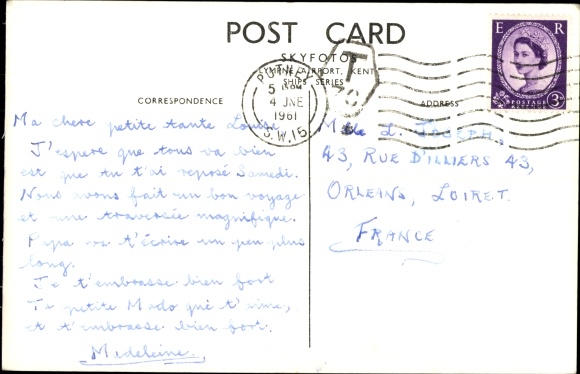 POST CARD
SKYFOTOS
LYMPNE AIRPORT, KENT
SHIPS SERIES
CORRESPONDENCE
ADDRESS
PUTNEY
4 JNE
1961
S.W.15
T
E R
POSTAGE
3D
Ma chere petite tante Louise
J'espere que tous va bien
est que tu t'ai reposé Samedi.
Nous avons fait un bon voyage
et une traversée magnifique.
Papa va t'écrire un peu plus
long.
Je t'embrasse bien fort
Ta petite Mado qui t'aime,
et t'embrasse bien fort.
Madeleine.
Mlle L. JOSEPH,
43, RUE D'ILLIERS 43,
ORLEANS, LOIRET.
FRANCE